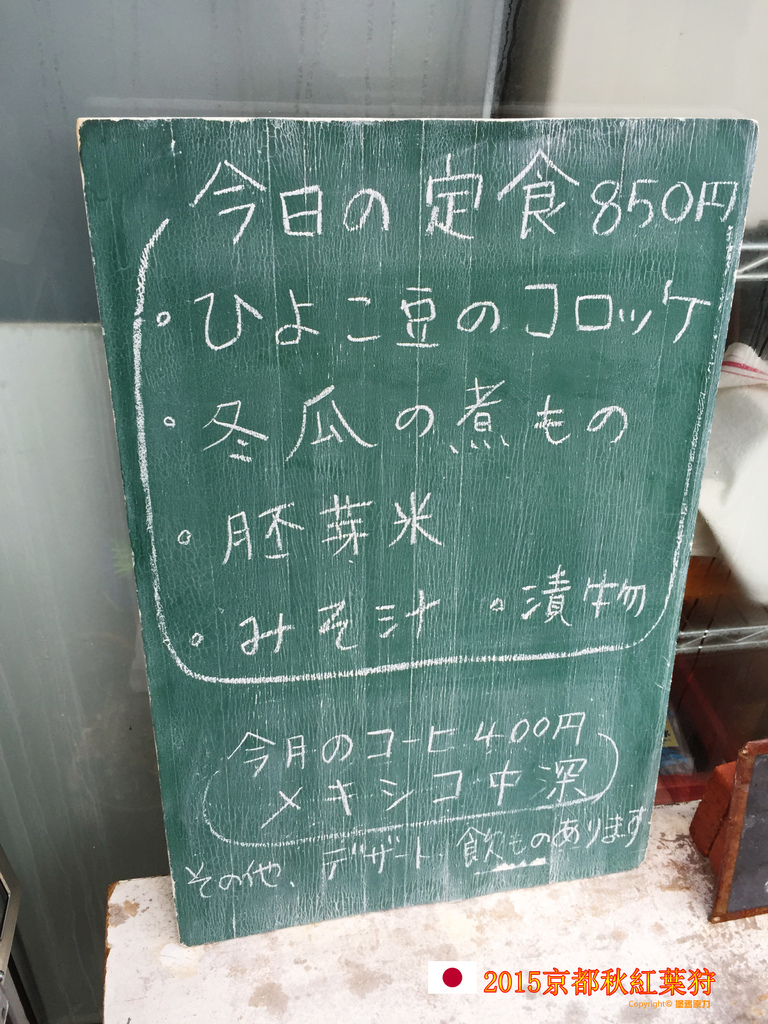 今日の定食 850円
・ひよこ豆のコロッケ
・冬瓜の煮もの
・胚芽米
・みそ汁 ・漬物
今月のコーヒ 400円
メキシコ中深
その他、デザート 飲ものあります
2015京都秋紅葉狩
Copyright©